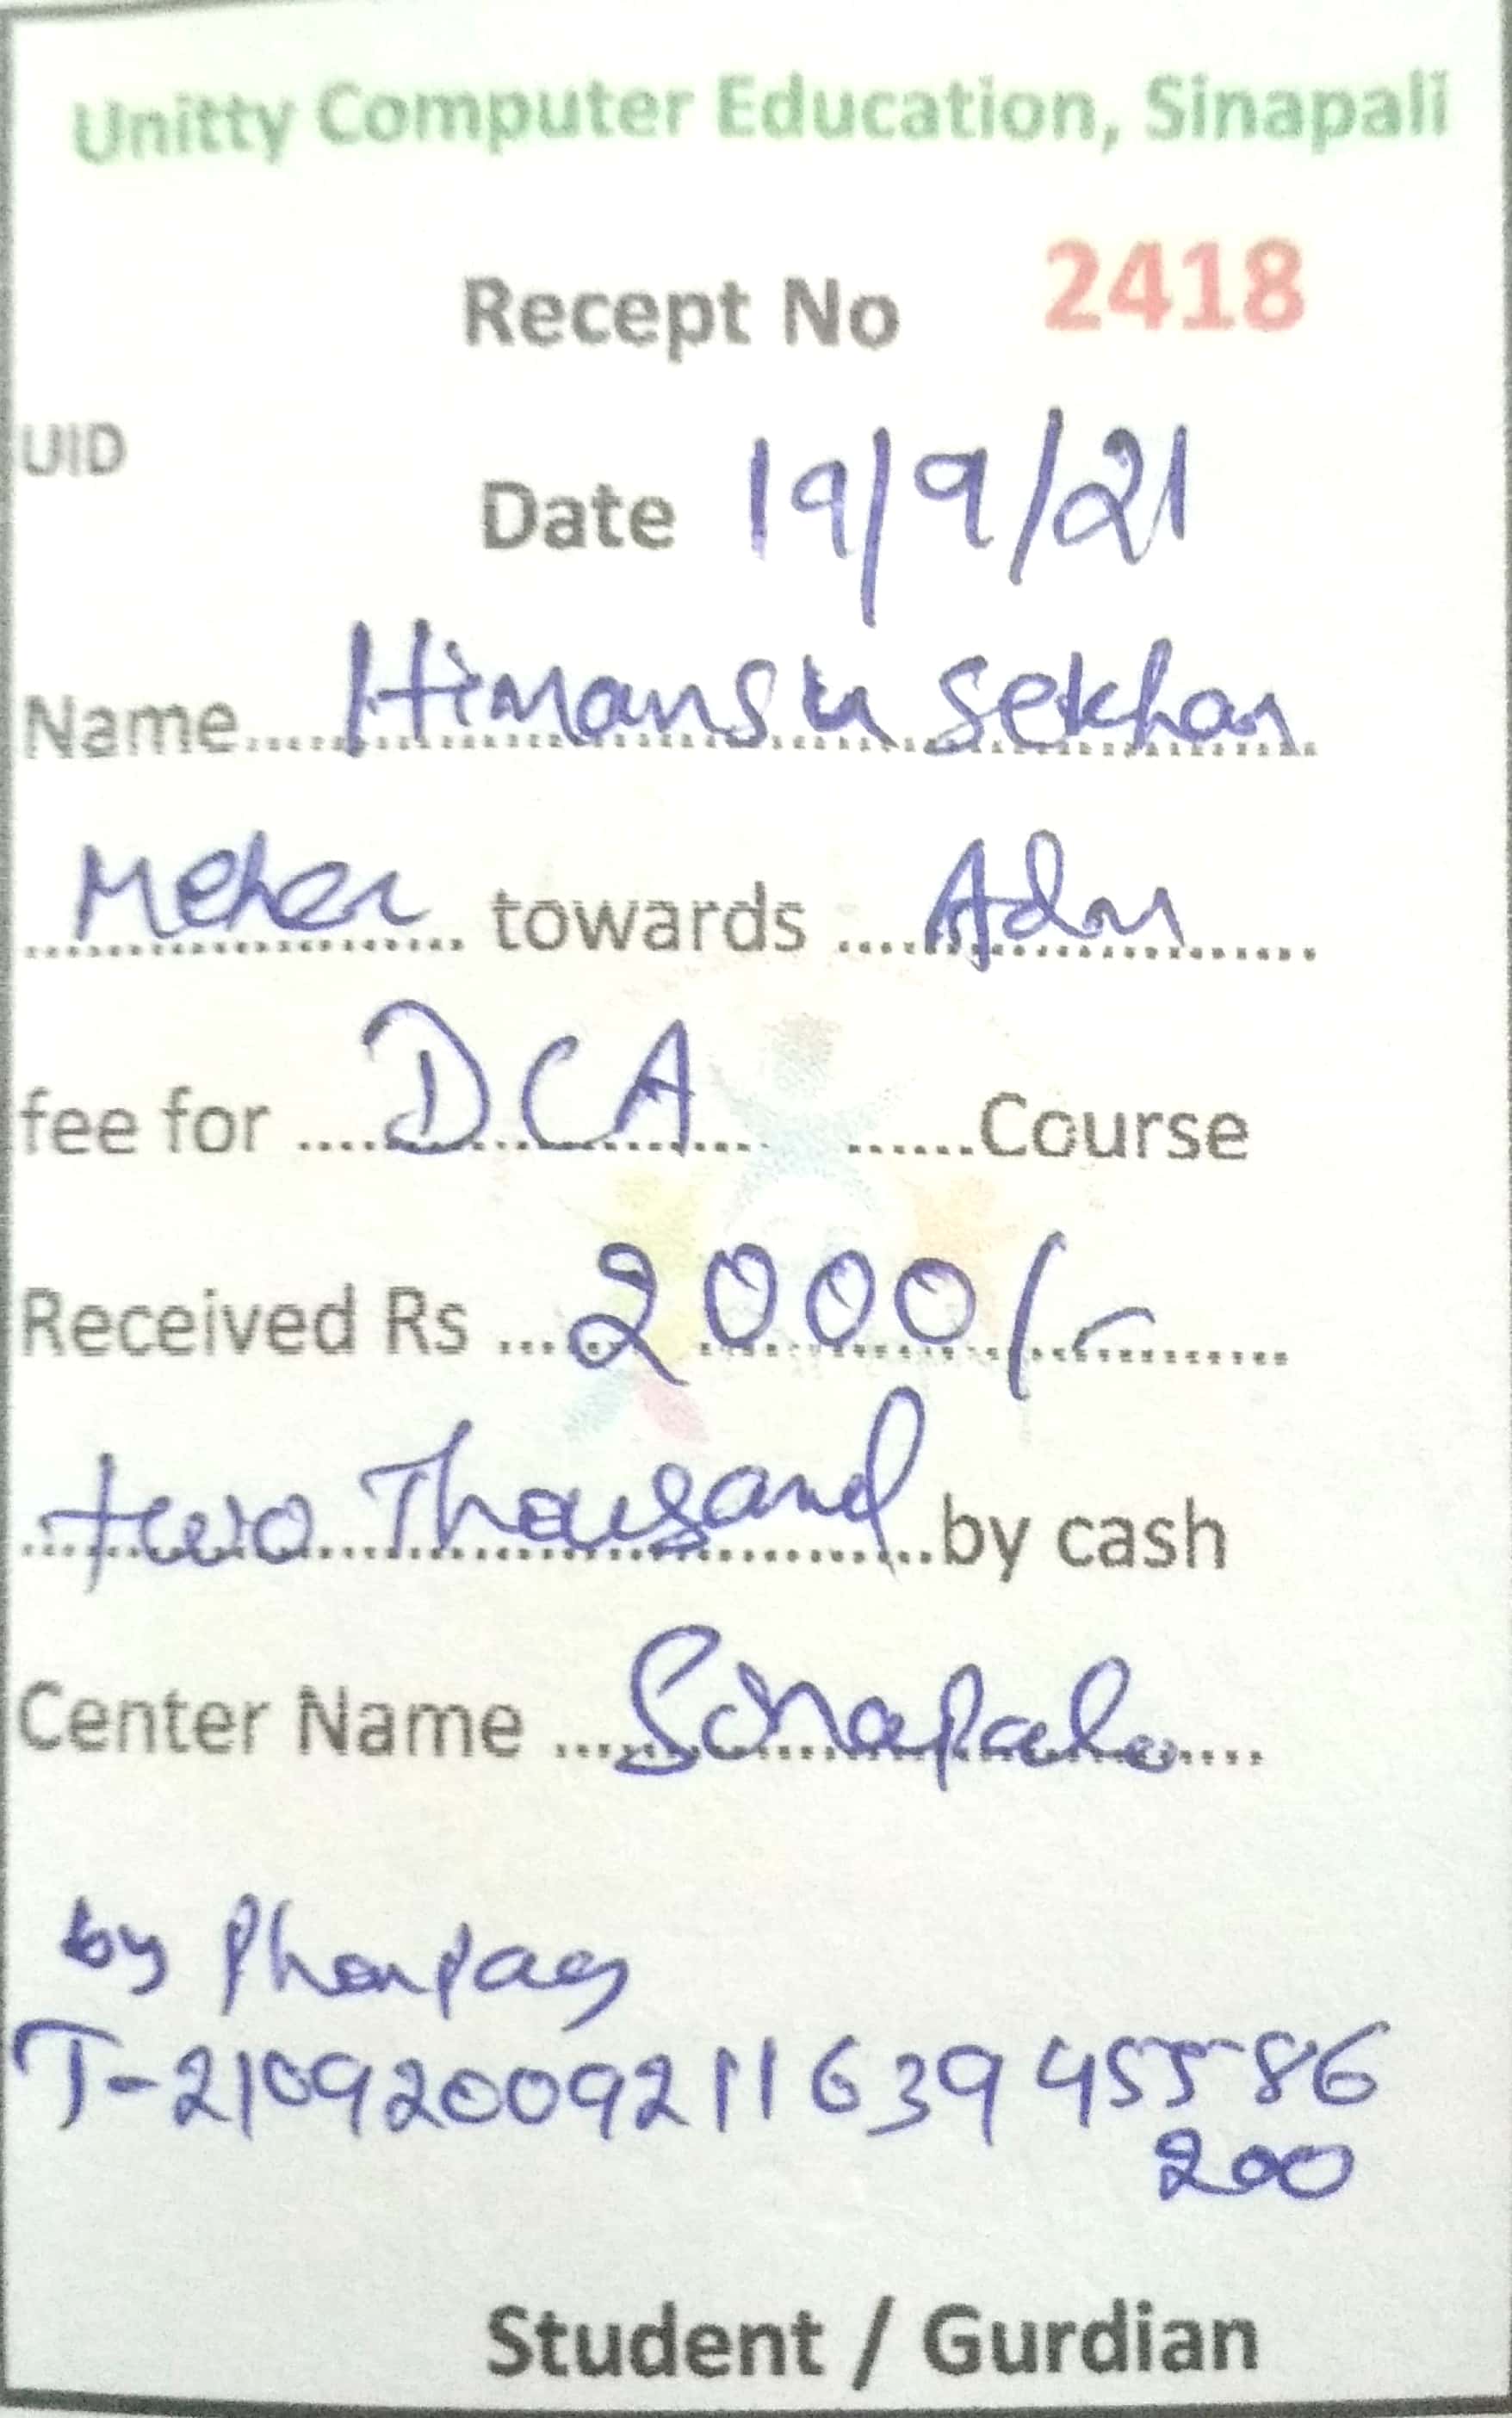 Unitty Computer Education, Sinapali
Recept No 2418
UID
Date 19/9/21
Name Himansu Sekhar
Meher towards Adm
fee for DCA Course
Received Rs 2000/-
two Thousand by cash
Center Name Sinapali
by Phonpay
T-2109200921163945586
200
Student / Gurdian